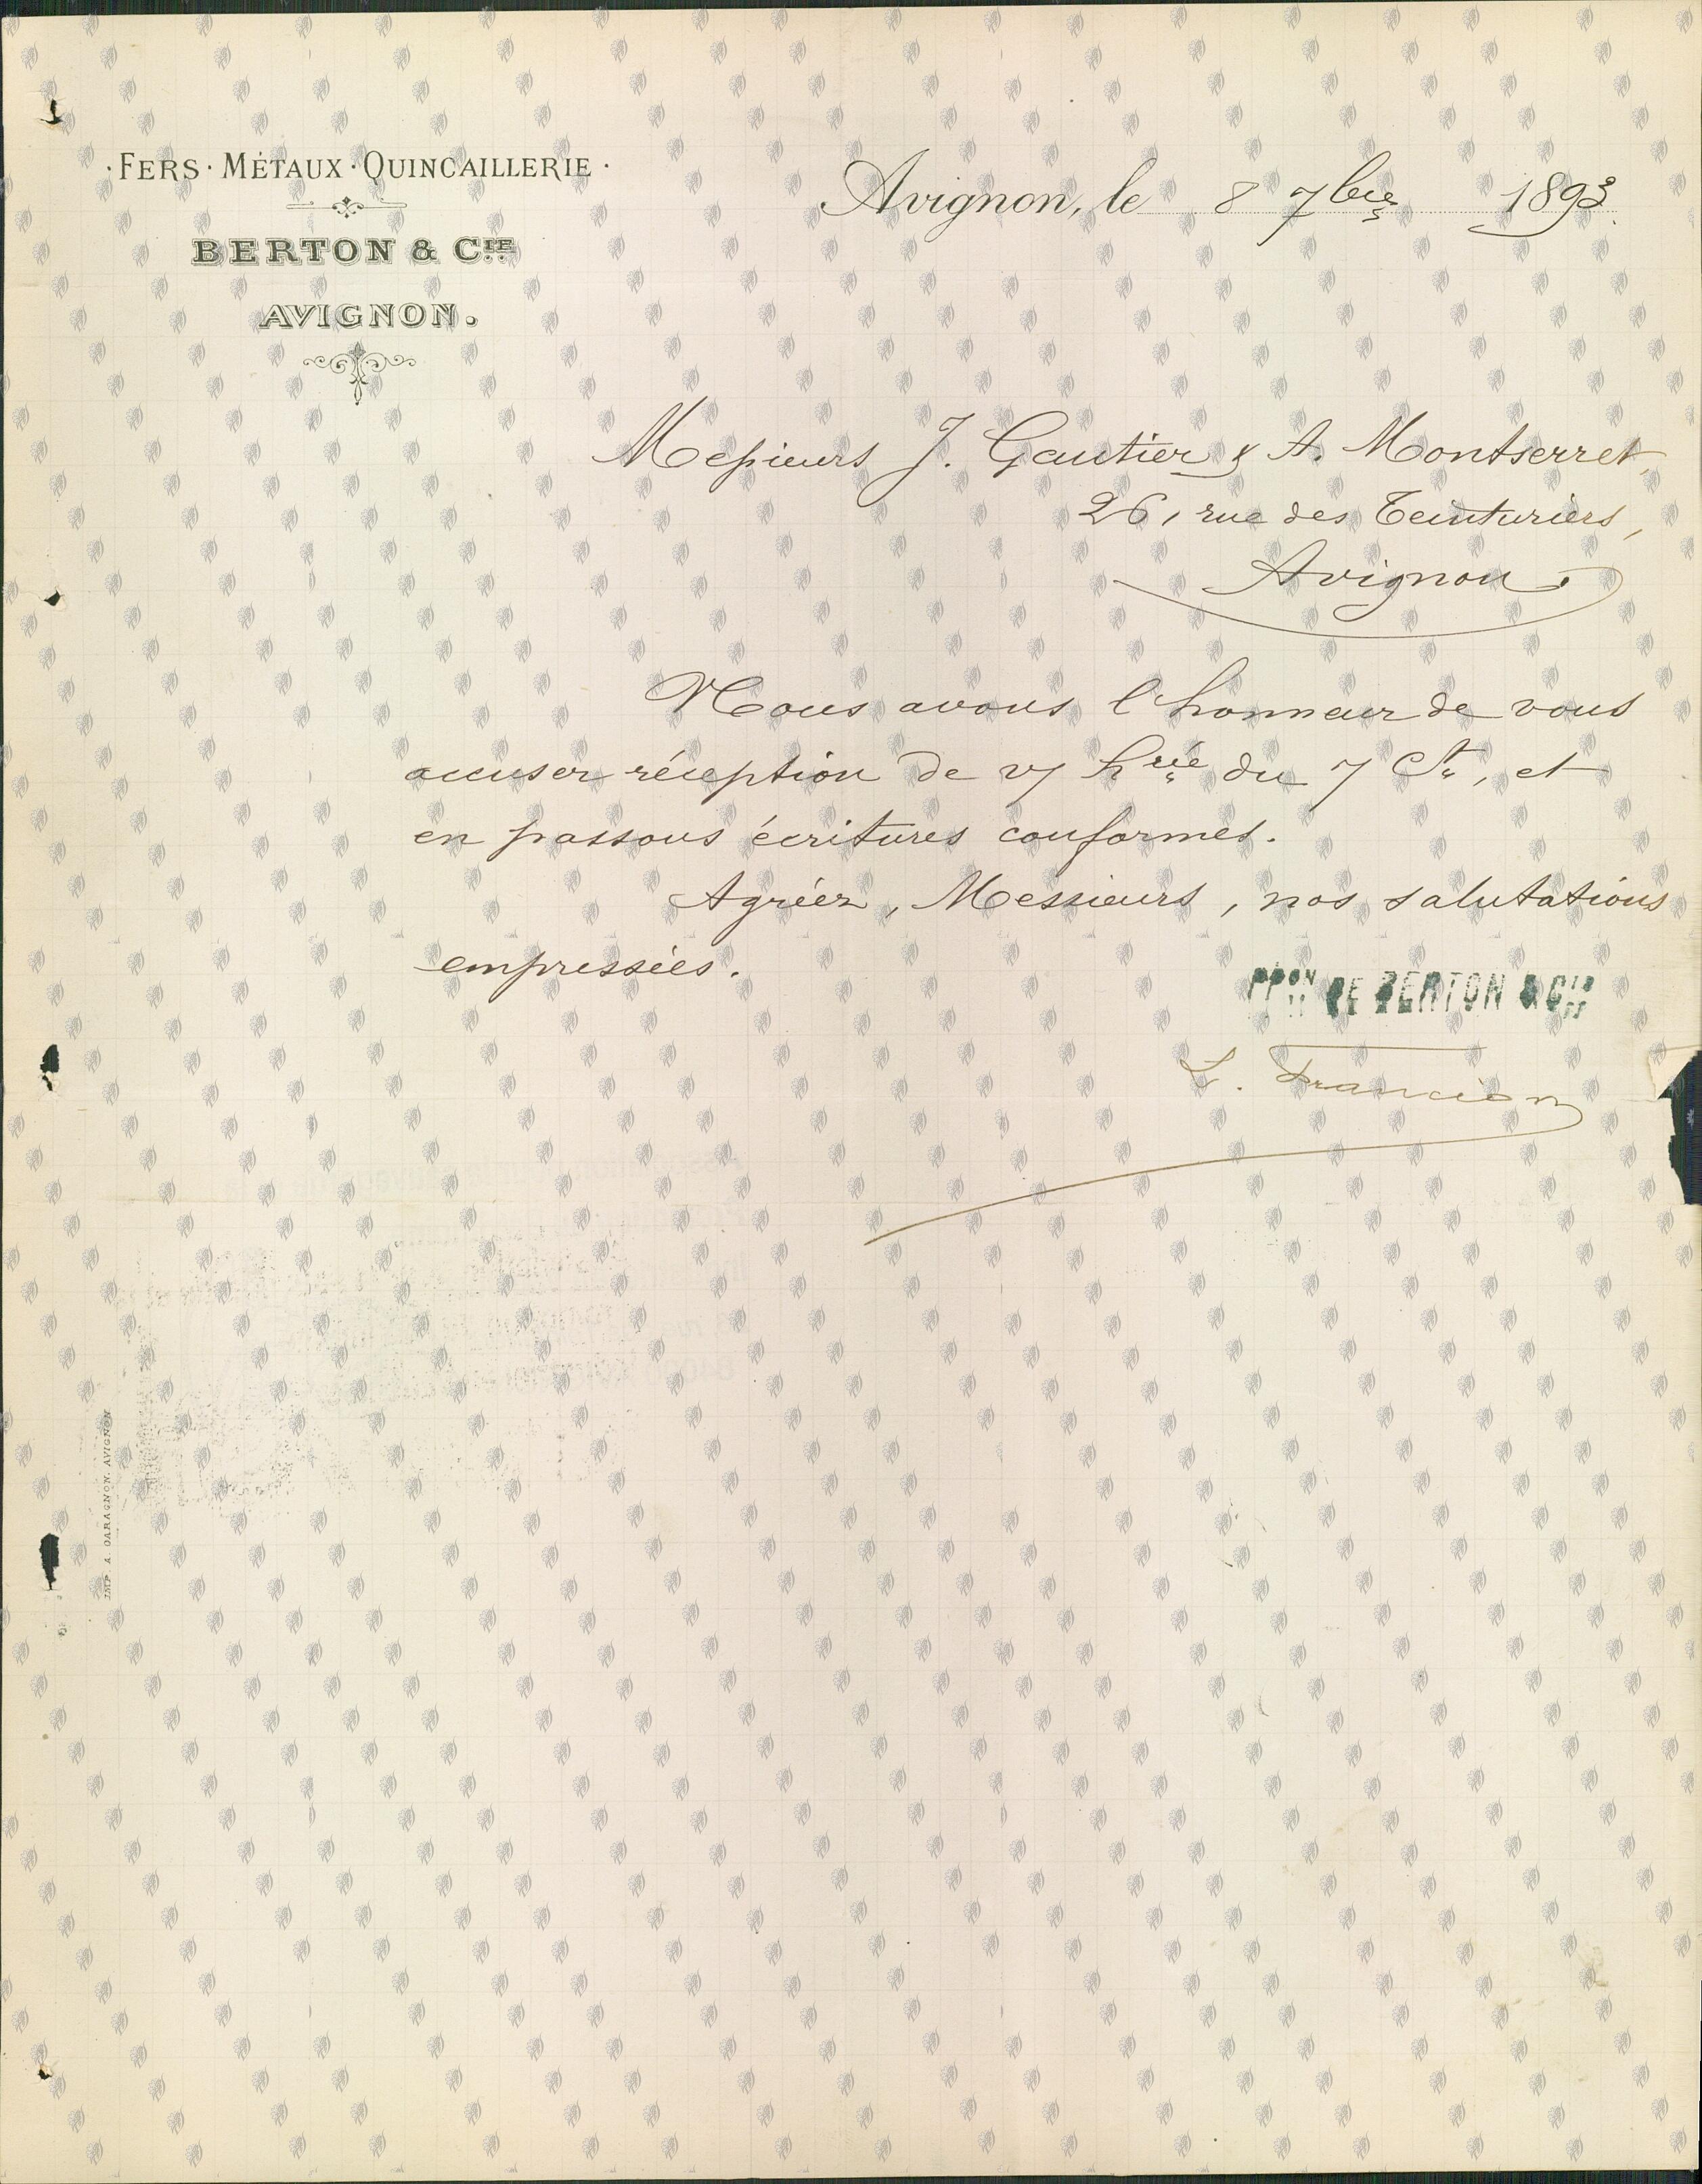 · FERS · MÉTAUX · QUINCAILLERIE ·
BERTON & CIE
AVIGNON.
Avignon, le 8 7bre 1893
Messieurs J. Gautier & A. Montserret,
26, rue des Teinturiers,
Avignon.
Nous avons l'honneur de vous
accuser réception de v/ hrée du 7 Ct, et
en passons écritures conformes.
Agréez, Messieurs, nos salutations
empressées.
PPON DE BERTON & CIE
L. Francion
IMP. A. GARAGNON. AVIGNON